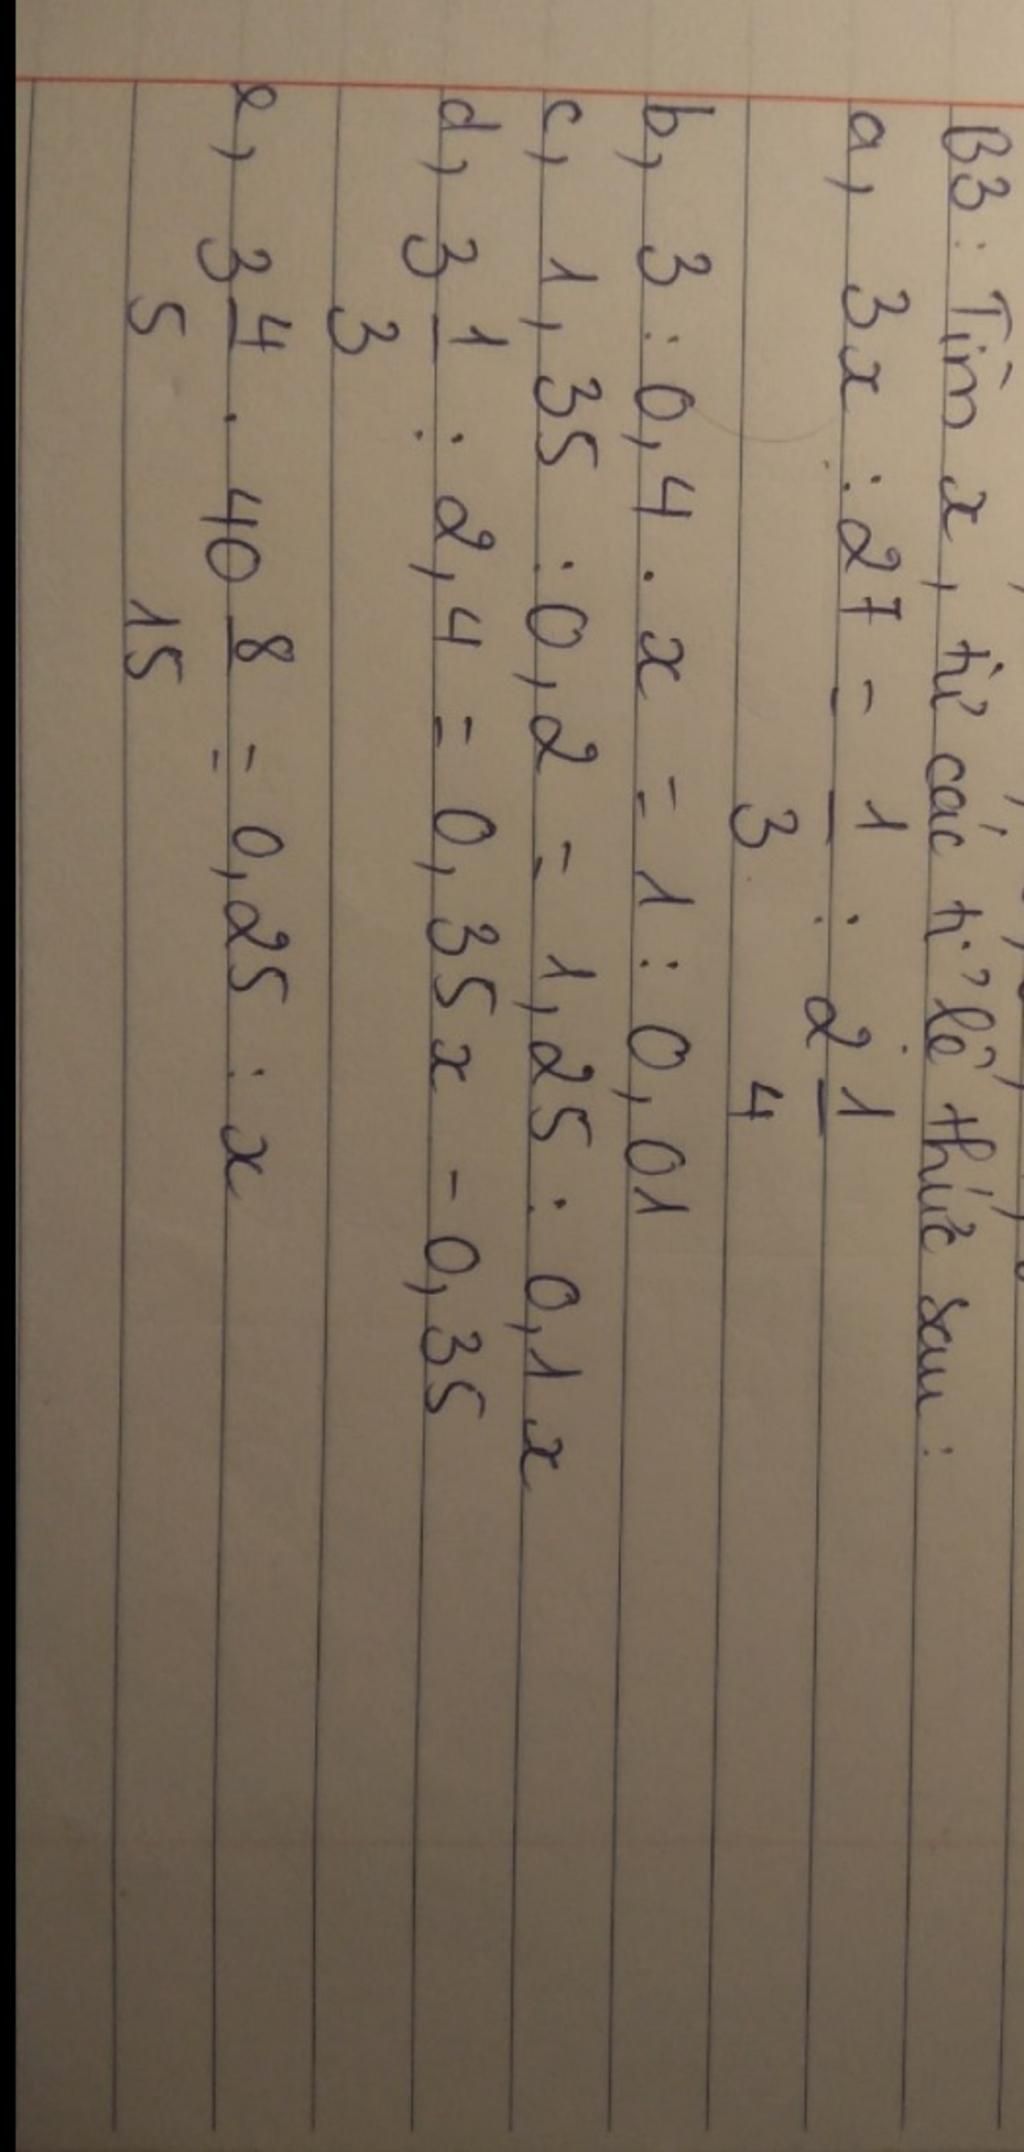 B3: Tìm x, từ các tỉ lệ thức sau:
a, 3x : 27 = 1/3 : 2 1/4
b, 3 : 0,4 . x = 1 : 0,01
c, 1,35 : 0,2 = 1,25 : 0,1x
d, 3 1/3 : 2,4 = 0,35x - 0,35
e, 3 4/5 . 40 8/15 = 0,25 : x